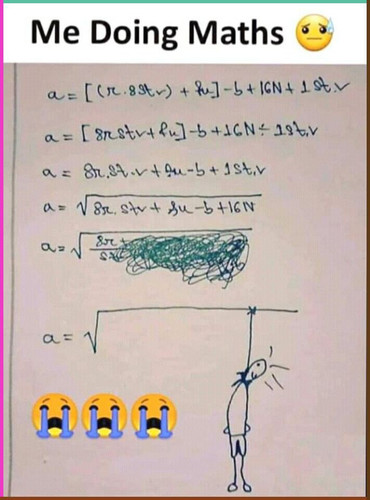 Me Doing Maths 😓
a = [(r.8St v) + fu] - b + 16N + 1 St.v
a = [8r Stv + fu] - b + 16N ÷ 1St.v
a = 8r.St.v + fu - b + 1St.v
a = √8r.Stv + fu - b + 16N
a = √8r
a = √